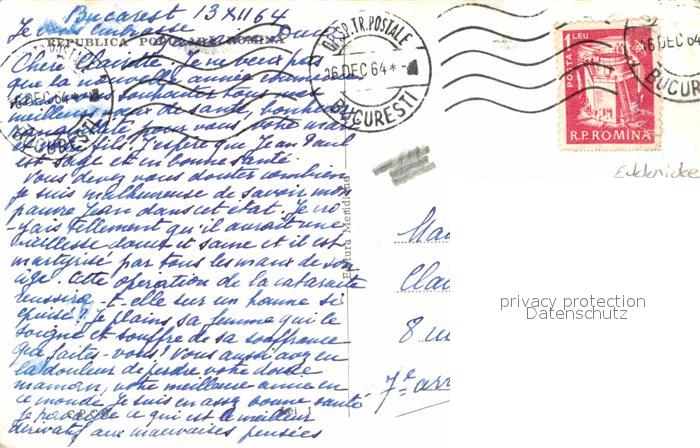 Bucarest 13 XII 64
Je vous embrasse Duci
REPUBLICA POPULARA ROMINA
Chère Claudette. Je ne veux pas
que la nouvelle année commence
sans vous souhaiter tous mes
meilleurs voeux de santé, bonheur
tranquillité, pour vous, votre mari
et votre fils! J'espère que Jean Paul
est sage et in bonne santé.
Vous devez vous douter combien
je suis malheureuse de savoir mon
pauvre Jean dans cet état. Je cro-
yais tellement qu'il aurait une
vieillesse douce et saine et il est
martyrisé par tous les maux de son
âge. Cette opération de la cataracte
reussira-t-elle sur un homme si
épuisé? Je plains sa femme qui le
soigne et souffre de sa souffrance
Que faites-vous? Vous aussi avez eu
la douleur de perdre votre douce
maman, votre meilleure amie en
ce monde. Je suis en assez bonne santé
Je travaille ce qui est le meilleur
dérivatif aux mauvaises pensées
Editura Meridiane
OF.SP.TR.POSTALE
16 DEC 64
BUCURESTI
16 DEC 64
BUCURESTI
16 DEC 64
BUCURESTI
POSTA 1 LEU
R.P.ROMINA
8 rue
7e arr
privacy protection
Datenschutz